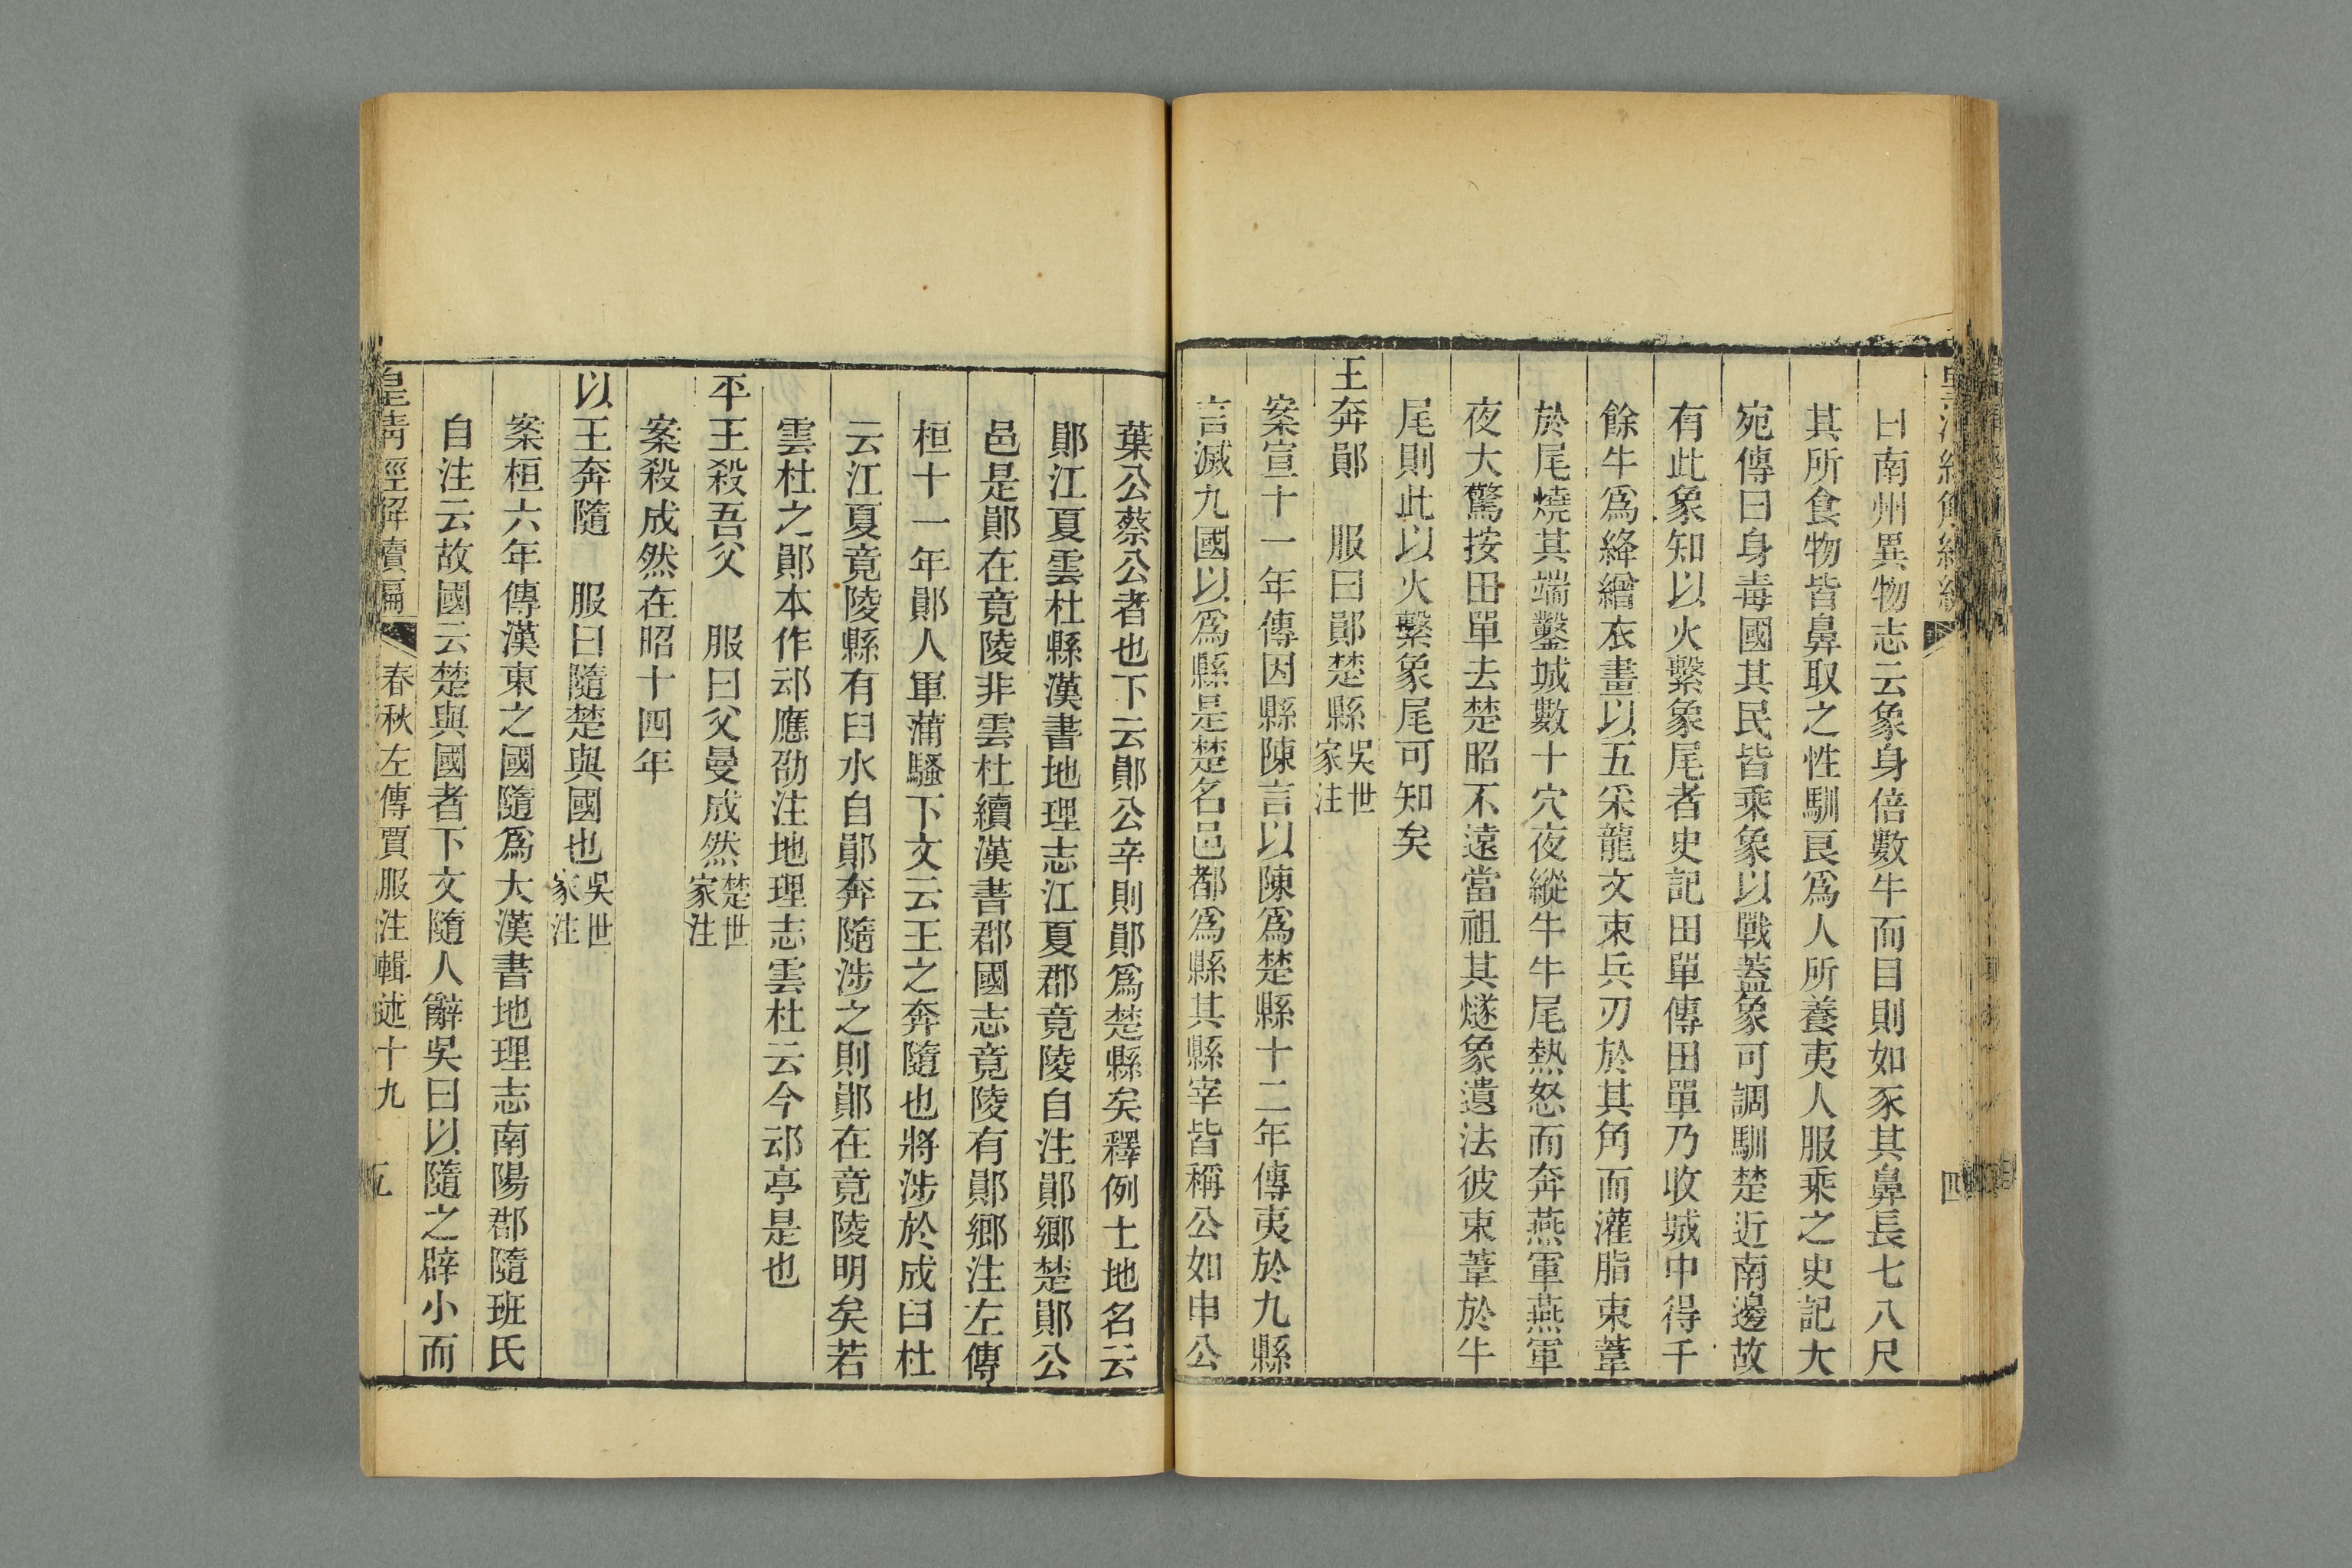 曰南州異物志云象身倍數牛而目則如豕其鼻長七八尺
其所食物皆鼻取之性馴良爲人所養夷人服乘之史記大
宛傳曰身毒國其民皆乘象以戰蓋象可調馴楚近南邊故
有此象知以火繫象尾者史記田單傳田單乃收城中得千
餘牛爲絳繒衣畫以五采龍文束兵刃於其角而灌脂束葦
於尾燒其端鑿城數十穴夜縱牛牛尾熱怒而奔燕軍燕軍
夜大驚按田單去楚昭不遠當祖其燧象遺法彼束葦於牛
尾則此以火繫象尾可知矣
王奔鄖 服曰鄖楚縣吳世家注
案宣十一年傳因縣陳言以陳爲楚縣十二年傳夷於九縣
言滅九國以爲縣是楚名邑都爲縣其縣宰皆稱公如申公
葉公蔡公者也下云鄖公辛則鄖爲楚縣矣釋例土地名云
鄖江夏雲杜縣漢書地理志江夏郡竟陵自注鄖鄉楚鄖公
邑是鄖在竟陵非雲杜續漢書郡國志竟陵有鄖鄉注左傳
桓十一年鄖人軍蒲騷下文云王之奔隨也將涉於成臼杜
云江夏竟陵縣有臼水自鄖奔隨涉之則鄖在竟陵明矣若
雲杜之鄖本作䢵應劭注地理志雲杜云今䢵亭是也
平王殺吾父 服曰父曼成然楚世家注
案殺成然在昭十四年
以王奔隨 服曰隨楚與國也吳世家注
案桓六年傳漢東之國隨爲大漢書地理志南陽郡隨班氏
自注云故國云楚與國者下文隨人辭吳曰以隨之辟小而
皇清經解續編 春秋左傳賈服注輯述十九 五